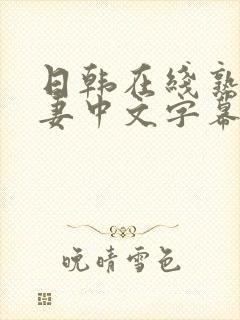 日韩在线熟
妻中文字幕
晚晴雪色